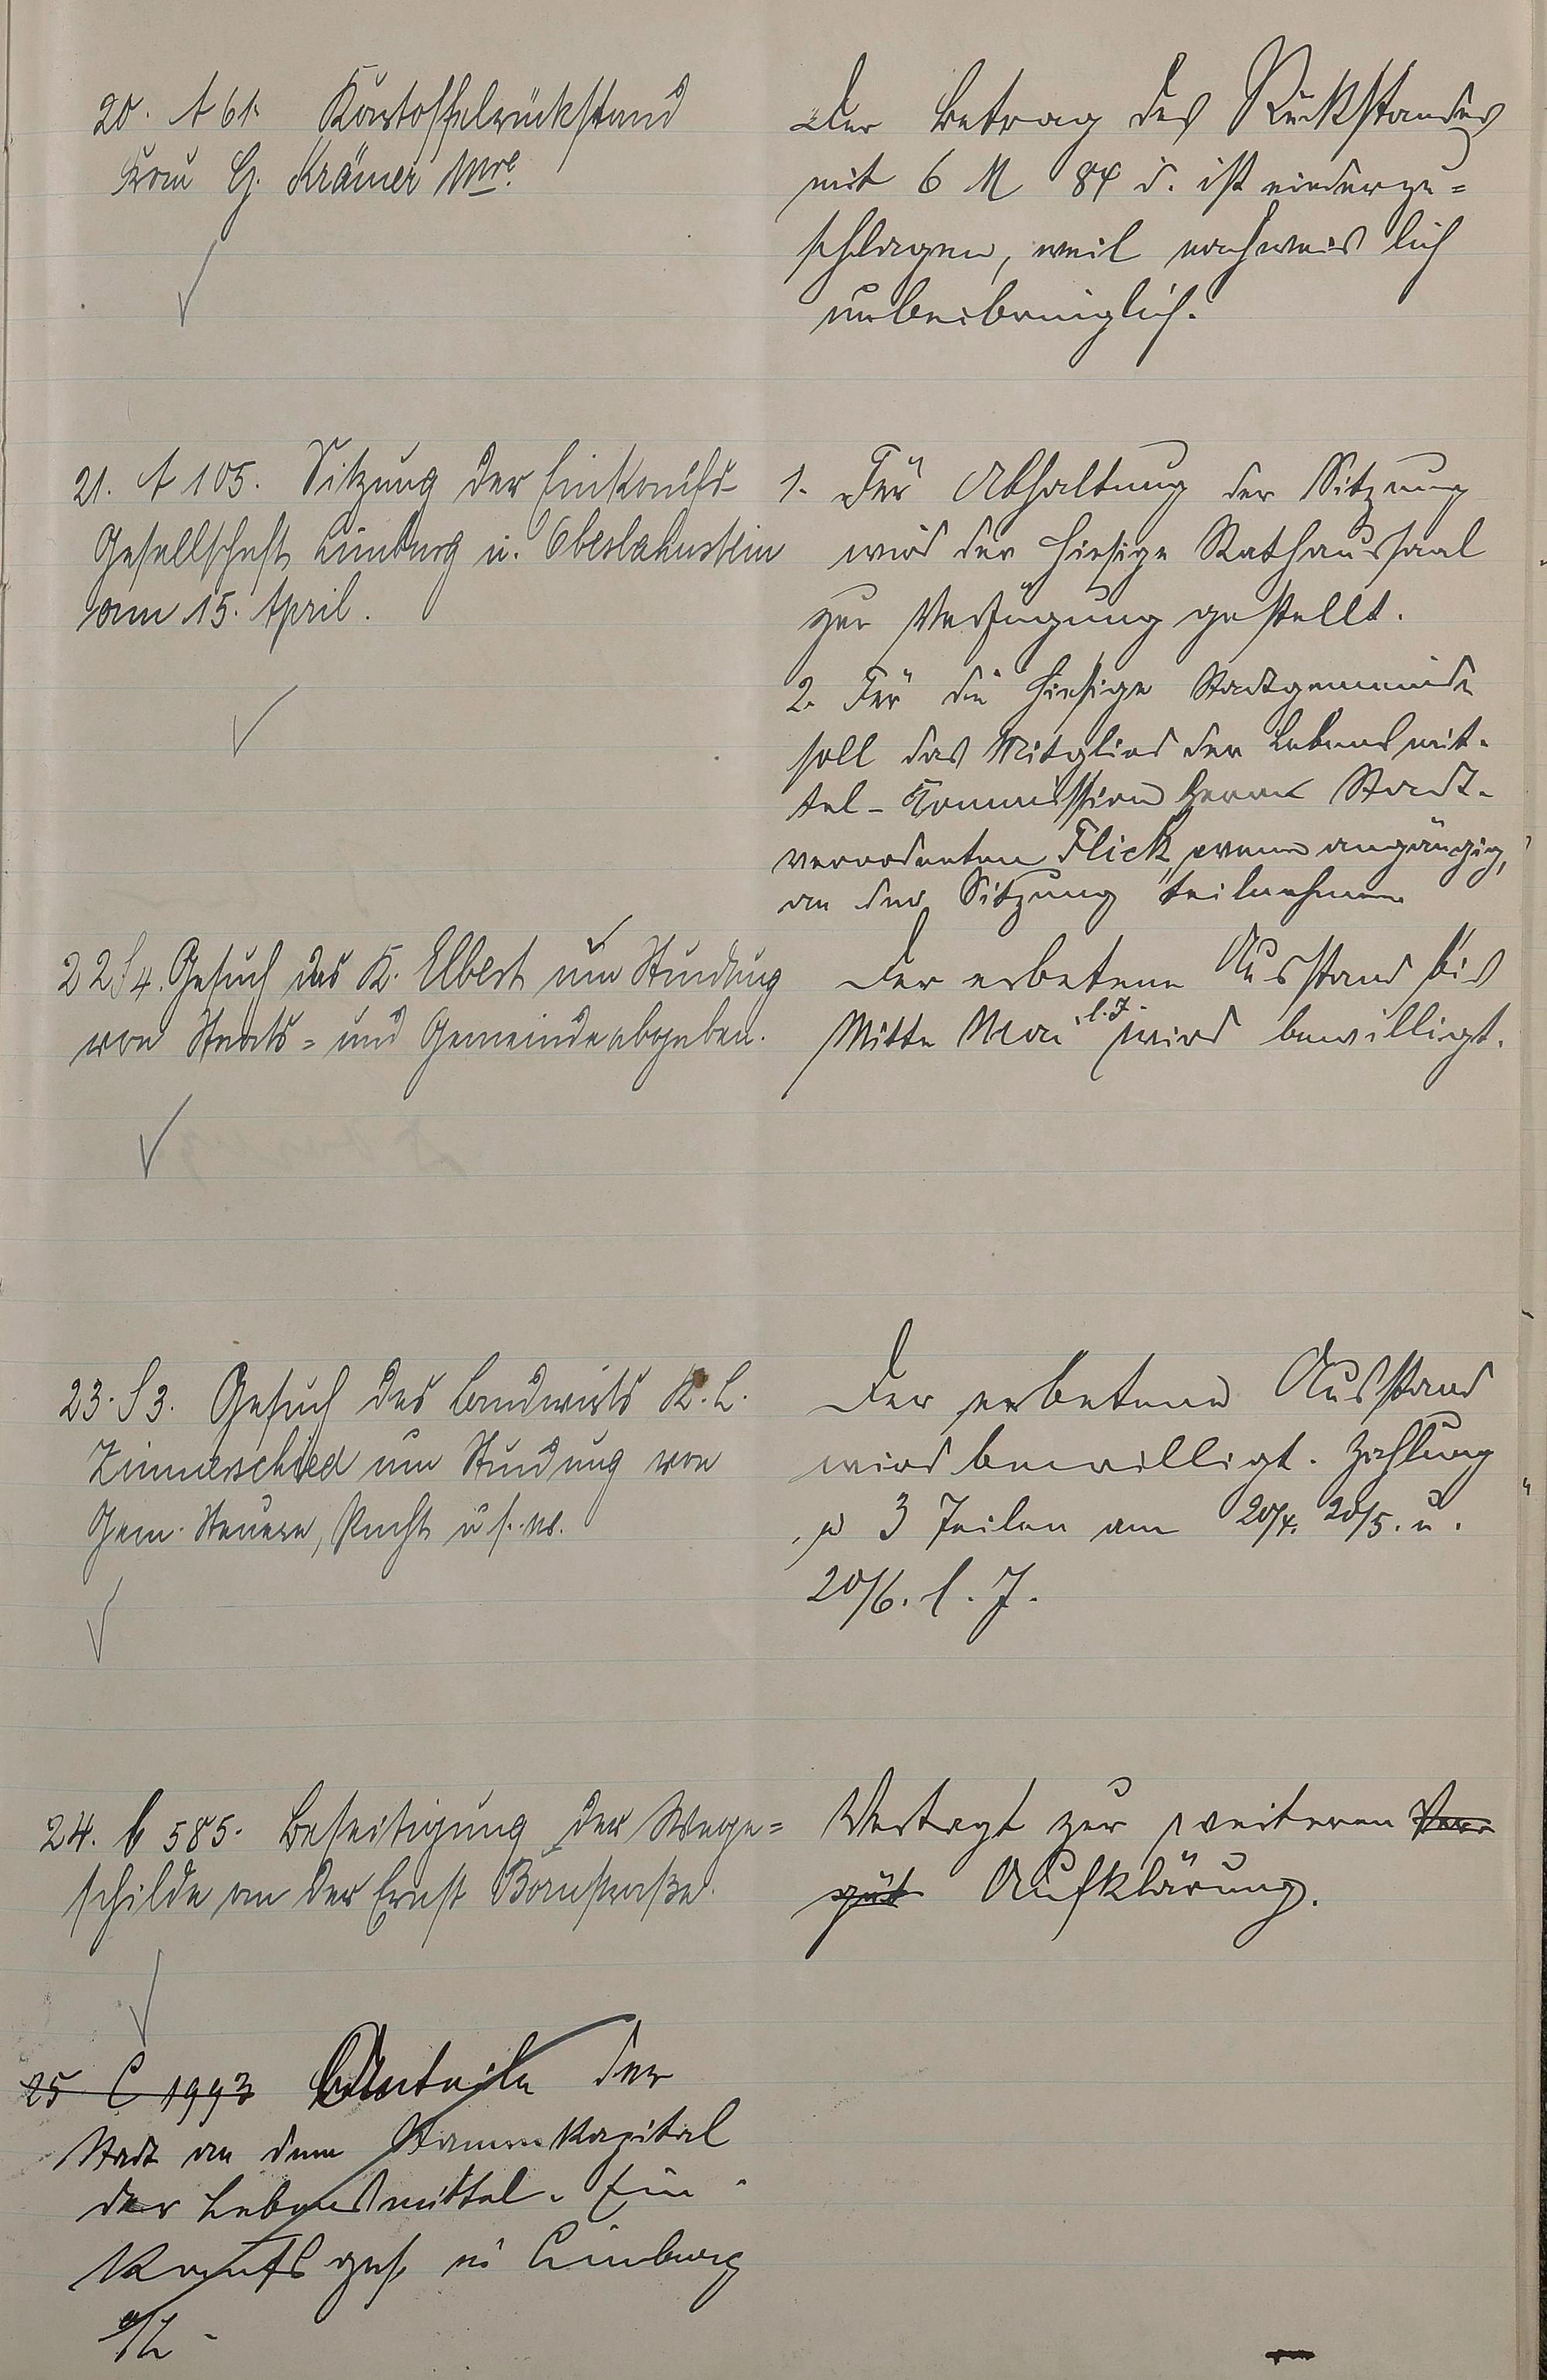 20. A 61. Kartoffelrückstand
Frau G. Krämer Wwe.
Der Betrag des Rückstandes
mit 6 M 84 d. ist niederzu=
schlagen, weil nachweislich
unbeibringlich.
21. A 105. Sitzung der Einkaufs-
Gesellschaft Limburg u. Oberlahnstein
am 15. April.
1. Für Abhaltung der Sitzung
wird der hiesige Rathaussaal
zur Verfügung gestellt.
2. Für die hiesige Stadtgemeinde
soll das Mitglied der Lebensmit-
tel-Kommission Herrn Stadt-
verordneten Flick, wenn angängig,
an der Sitzung teilnehmen
22 S 4. Gesuch des K. Elbert um Stundung
von Staats= und Gemeindeabgaben.
Der erbetene Ausstand bis
Mitte Mai l. J. wird bewilligt.
23. S 3. Gesuch des Landwirts K. L.
Zimmerschied um Stundung von
Gem. Steuern, Pacht u. s. w.
Der erbetene Ausstand
wird bewilligt. Zahlung
in 3 Teilen am 20/4. 20/5. u.
20/6. l. J.
24. b 585. Beseitigung der Wege=
schilde an der Ernst Bornstraße.
Vertagt zur weiteren
Aufklärung.
25 C 1993 Anteile der
Stadt an dem Stammkapital
der Lebensmittel-Ein-
kaufsges. in Limburg
a/L.